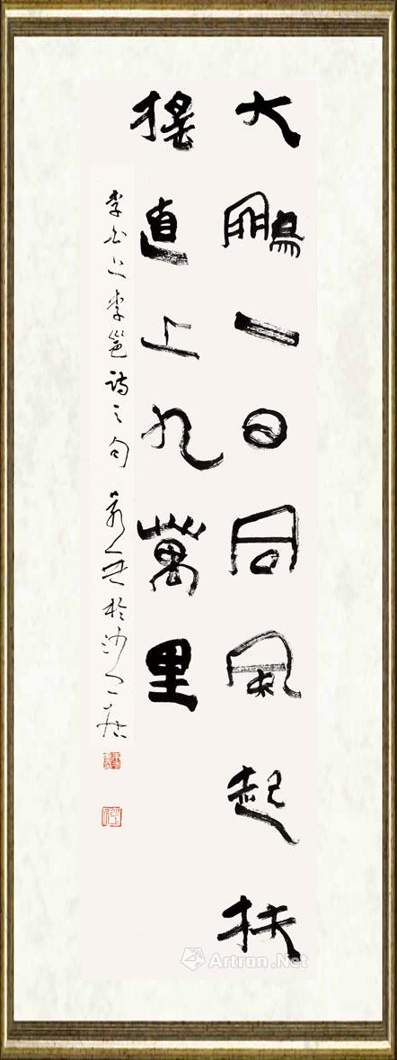 大鹏一日同風起扶
摇直上九萬里
李白上李邕詩之句
於沙
Artron.Net